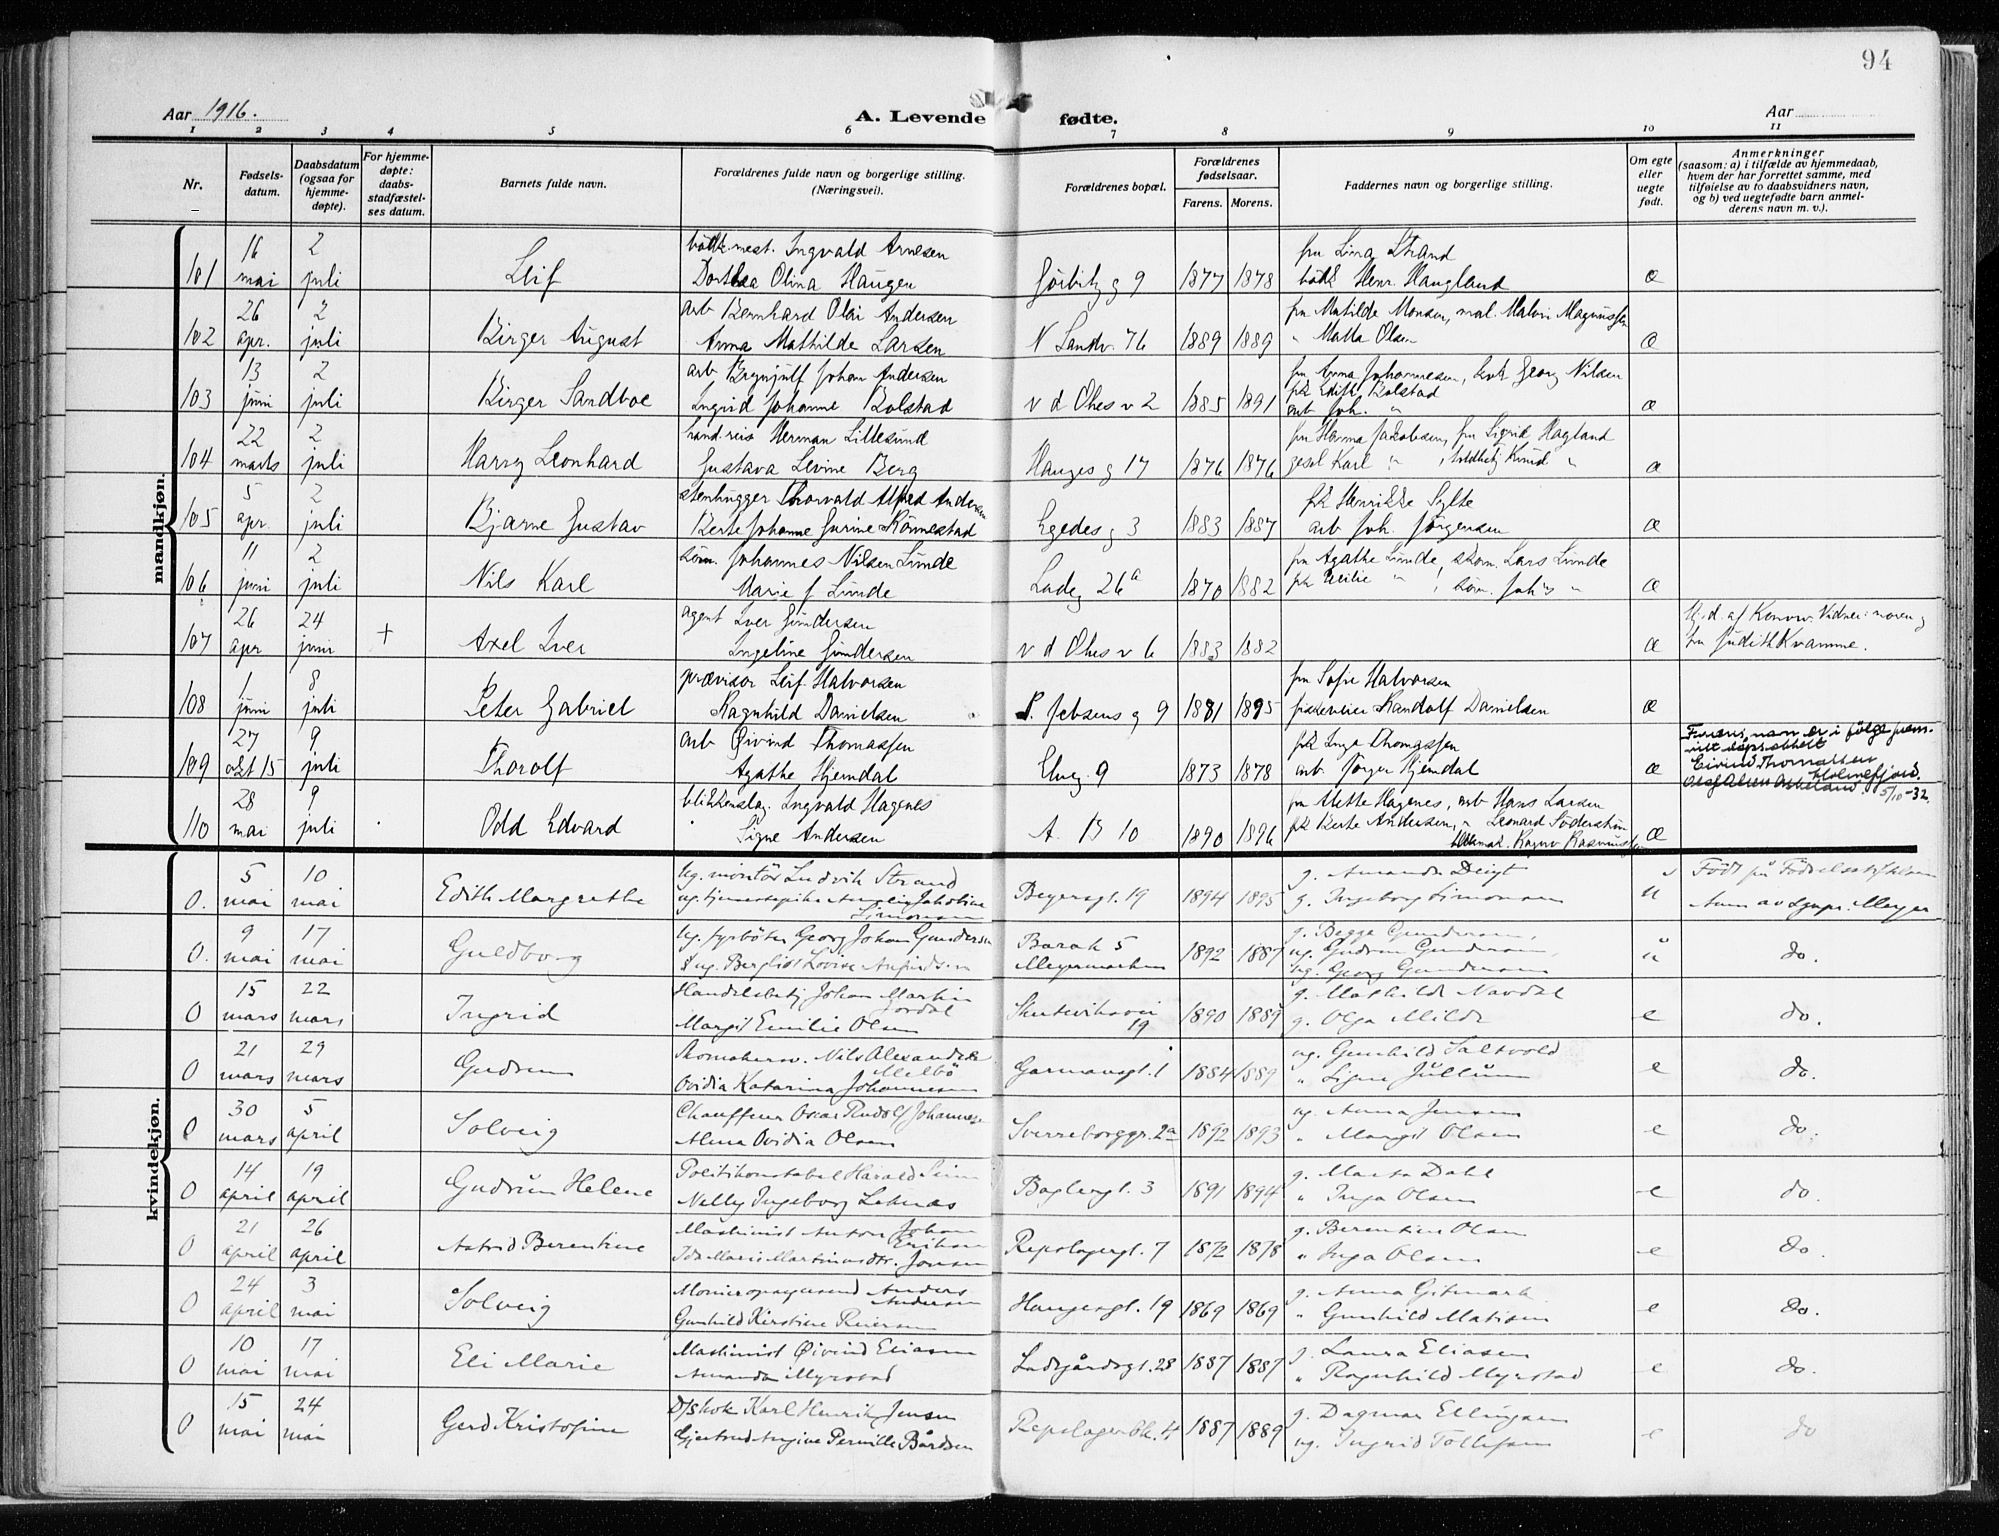 94
Aar 1916.
A. Levende fødte.
Aar
1 2 3 4 5 6 7 8 9 10 11
Nr.
Fødsels-
datum.
Daabsdatum
(ogsaa for
hjemme-
døpte).
For hjemme-
døpte:
daabs-
stadfæstel-
ses datum.
Barnets fulde navn.
Forældrenes fulde navn og borgerlige stilling.
(Næringsvei).
Forældrenes bopæl.
Forældrenes
fødselsaar.
Farens. Morens.
Faddernes navn og borgerlige stilling.
Om egte
eller
uegte
født.
Anmerkninger
(saasom: a) i tilfælde av hjemmedaab,
hvem der har forrettet samme, med
tilføielse av to daabsvidners navn,
og b) ved uegtefødte barn anmel-
derens navn m. v.).
mandkjøn.
16 2 Ingvald Arnesen fru Lina Strand
101 mai juli Leif Dorthea Olina Haugen 9 1877 1878 Henr. Haugland æ
26 2 arb Bernhard Olai Andersen fru Matilde Monsen, Malvin Magnussen
102 apr. juli Birger August Anna Mathilde Larsen N Sandv. 76 1889 1889 " Matta Olsen æ
13 2 arb Brynjulf Johan Andersen fru Anna Johannesen, Georg Nilsen
103 juni juli Birger Sandboe Ingrid Johanne Bolstad v d Ohes v 2 1885 1891 frk Edith Bolstad
arb Joh. " æ
22 2 Herman Lillesund fru Hanna Jakobsen, fru Sigrid Hagland
104 marts juli Harry Leonhard Gustava Levine Berg Hauges g 17 1876 1876 gesel Karl " , Knud " æ
5 2 stenhugger Thorvald Alfred Andersen frk Henrikke Sylte
105 apr. juli Bjarne Gustav Berte Johanne Gurine Rønnestad Egedes g 3 1883 1887 arb Joh. Jørgensen æ
11 2 søm. Johannes Nilsen Lunde fru Agathe Lunde, skom. Lars Lunde
106 juni juli Nils Karl Marie f Lunde Ladeg 26a 1870 1882 frk Cecilie " , søm. Joh's " æ
26 24 agent Iver Gundersen
107 apr juni + Axel Iver Ingeline Gundersen v d Ohes v 6 1883 1882 æ Hj. d. af Vidner: moren og
fru Judith Kvamme.
1 8 provisor Leif Halvorsen fru Sofie Halvorsen
108 juni juli Peter Gabriel Ragnhild Danielsen P. Jebsens g 9 1881 1895 Randolf Danielsen æ
27 9 arb Øivind Thomassen frk Inga Thomassen
109 okt 15 juli Thorolf Agathe Hjemdal Elveg. 9 1873 1878 arb. Jørger Hjemdal æ
Farens navn er i følge frem-
vist dåpsattest
Eivind Thomassen
Holmefjord. 5/10-32.
28 9 blikkenslag. Ingvald Hagenes fru Mette Hagenes, arb Hans Larsen
110 mai juli Odd Edvard Signe Andersen A. B 10 1890 1896 frk Berte Andersen, " Leonard Söderström æ
Ragnv Rasmussen
kvindekjøn.
5 10 ug. montør Ludvik Strand g. Amanda Deigt Født på Fødselsstiftelsen
0. mai mai Edith Margrethe ug. tjenestepike Jakobine
Simonsen Beyersgt. 19 1894 1895 g. Ingeborg Simonsen u Anm av Meyer
9 17 ug. fyrbøter Georg Johan Gundersen g. Begge Gundersen,
0. mai mai Guldborg ug. Bergliot Lovise Barak 5
Meyermarken 1892 1887 ug. Gudrun Gundersen,
ug. Georg Gundersen u do.
15 22 Handelsbetj Johan Martin
Jordal g. Mathilde Navdal
0 mars mars Ingrid Margit Emilie Olsen Skuteviksvei
19 1890 1889 g. Olga Milde e do.
21 29 Skomakersv. Nils Alexander
Melbö ug. Gunhild Saltvold
0 mars mars Gudrun Ovidia Katarina Johannesen Garmansgt. 1 1884 1889 " Signe Jullum e do.
30 5 Chauffeur Oscar Rudolf Johannesen ug. Anna Jensen
0 mars april Solveig Alma Ovidia Olsen Sverreborggr. 2a 1892 1893 " Margit Olsen e do.
14 19 Politikonstabel Harald Seim g. Marta Dahl
0 april april Gudrun Helene Nelly Ingeborg Leknes Baglergt. 3 1891 1894 " Inga Olsen e do.
21 26 Maskinist Anton Johan
Eriksen g. Berentine Olsen
0 april april Astrid Berentine Ida Marie Martinusdtr. Jonsen Repslagergt. 7 1872 1878 " Inga Olsen e do.
24 3 Anders
Andersen g. Anna Gitmark
0 april mai Solveig Gunhild Kirstine Reiersen Haugesgt. 19 1869 1869 " Gunhild Matisen e do.
10 17 Maskinist Øivind Eliasen g. Laura Eliasen
0 mai mai Eli Marie Amanda Myrstad Ladegårdsgt. 28 1887 1887 " Ragnhild Myrstad e do.
15 24 D/skok Karl Henrik Jensen g. Dagmar Ellingsen
0 mai mai Gerd Kristofine Gjertrud Angine Pernille Bårdsen Repslagerbk. 4 1887 1889 ug. Ingrid Tollefsen e do